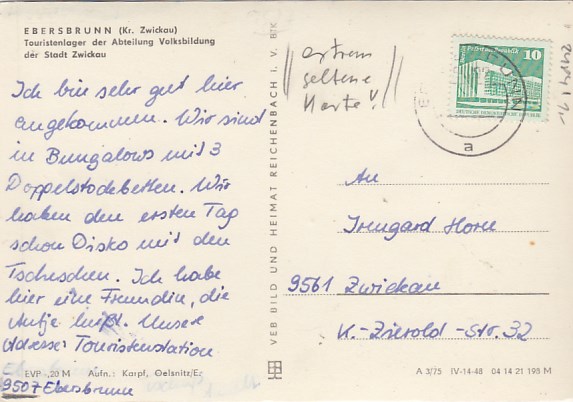 EBERSBRUNN (Kr. Zwickau)
Touristenlager der Abteilung Volksbildung
der Stadt Zwickau
Ich bin sehr gut hier
angekommen. Wir sind
in Bungalows mit 3
Doppelstockbetten. Wir
haben den ersten Tag
schon Disko mit den
Tschechen. Ich habe
hier eine Freundin, die
Antje heißt. Unsere
Adresse: Touristenstation
9507 Ebersbrunn
EVP -,20 M Aufn.: Karpf, Oelsnitz/E.
VEB BILD UND HEIMAT REICHENBACH I. V. BK
extrem
seltene
Karte!
10
DEUTSCHE DEMOKRATISCHE REPUBLIK
a
An
Irmgard Horn
9561 Zwickau
K.-Zierold-Str. 32
A 3/75 IV-14-48 04 14 21 198 M